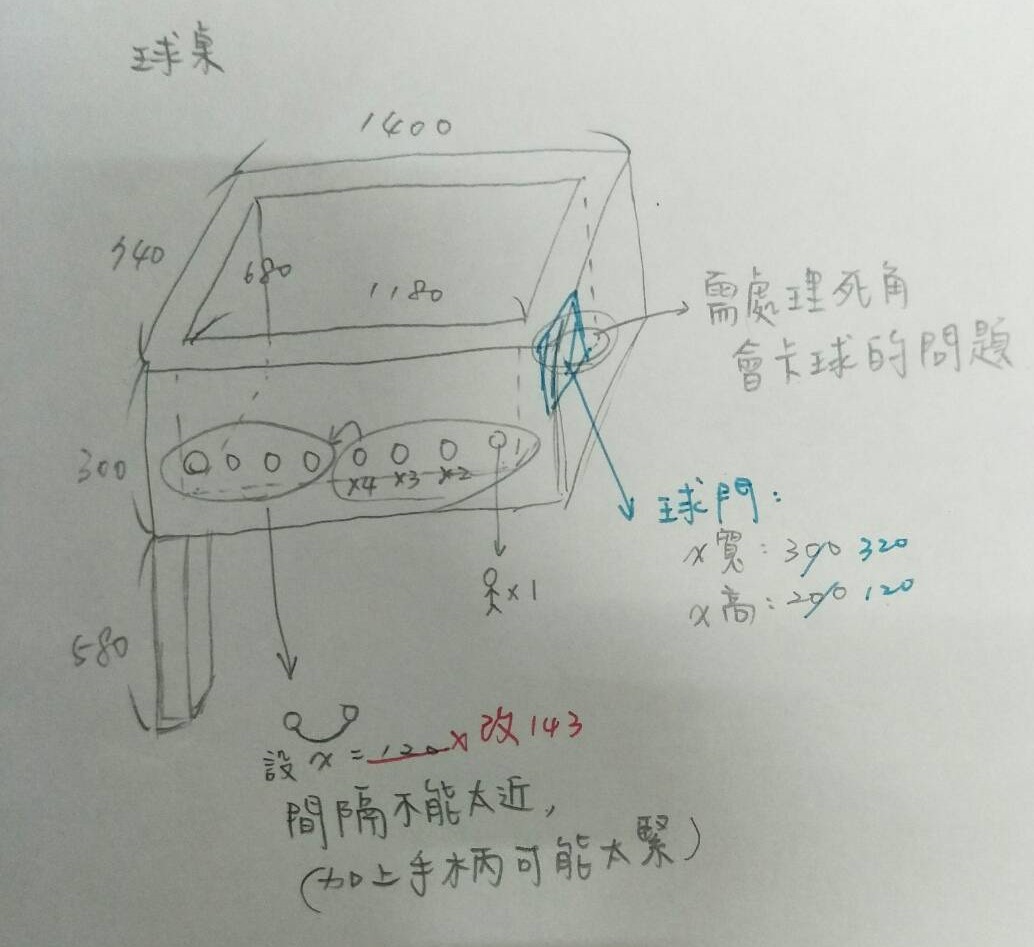 球桌
1400
740
680
1180
需處理死角
會卡球的問題
300
x4 x3 x2
球門：
x寬：390 320
x高：200 120
x1
580
設 x = 120 x 改143
間隔不能太近，
(加上手柄可能太緊)